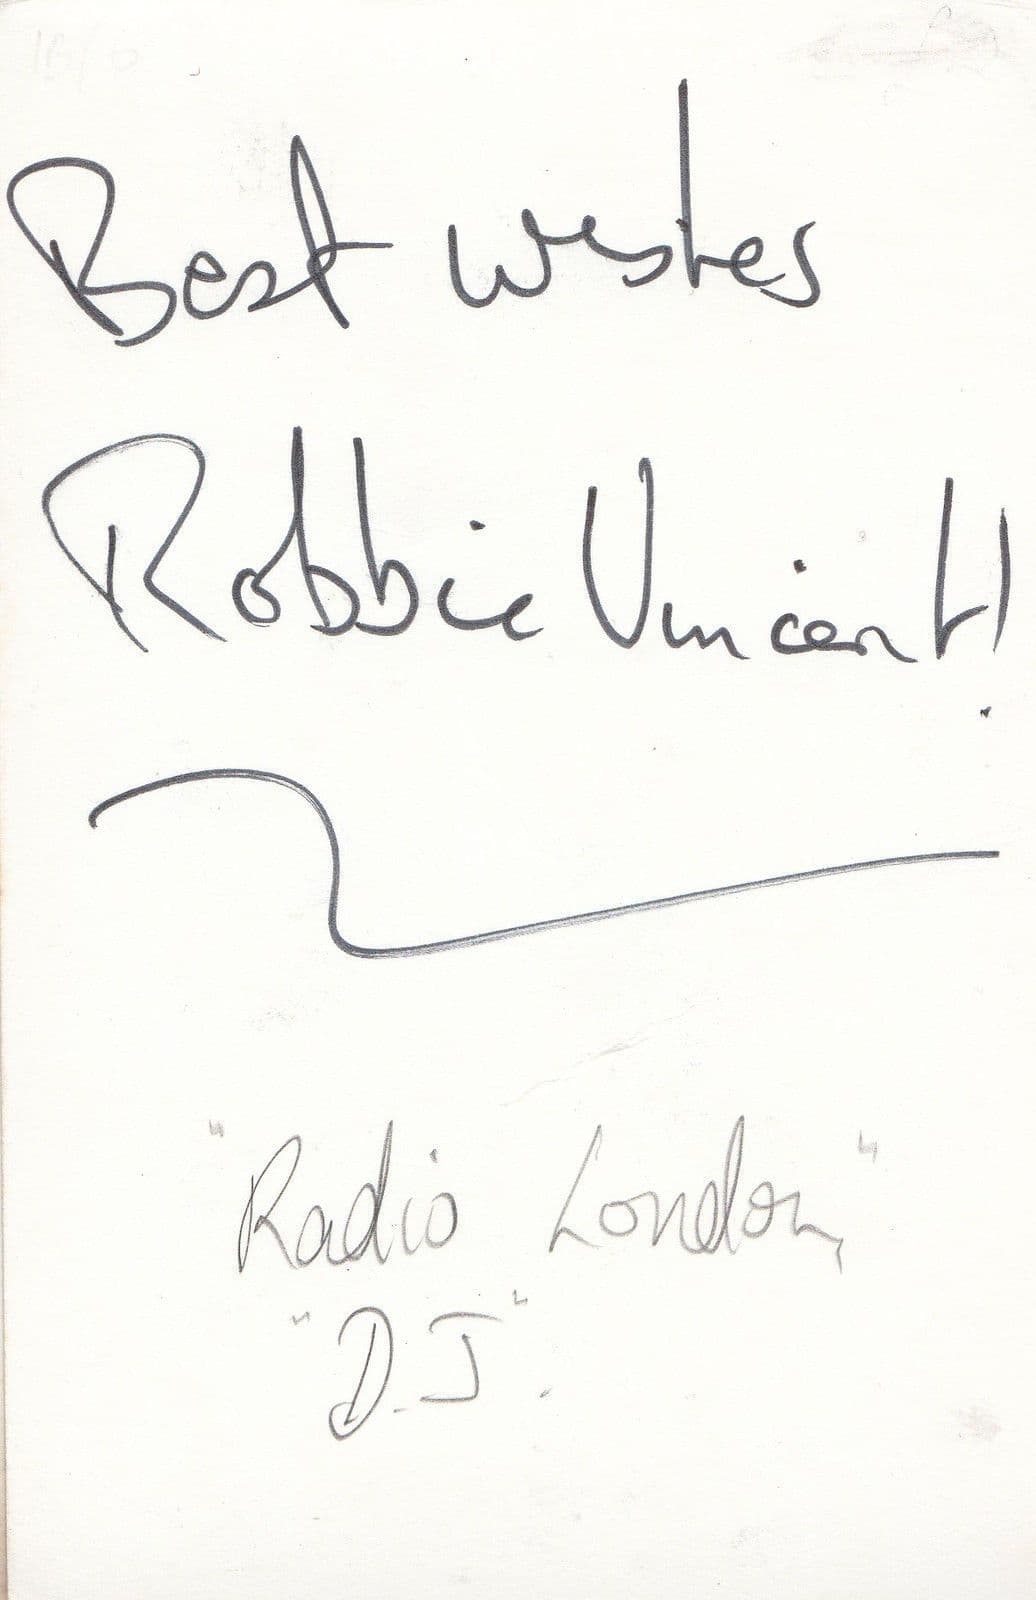 Best wishes
Robbie Vincent!
"Radio London"
"D.J".